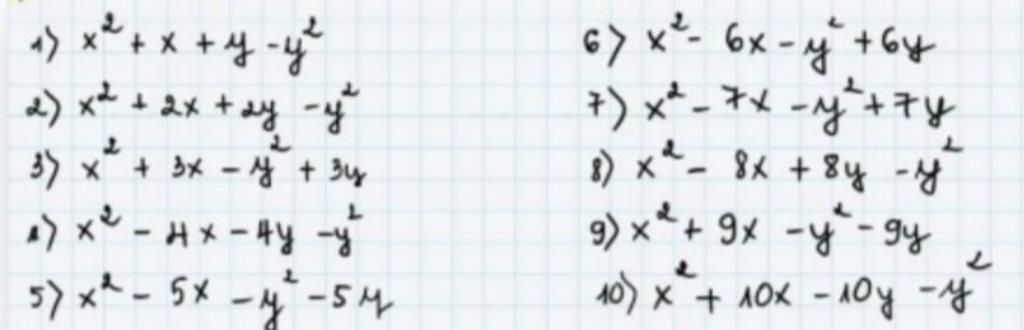 1) x² + x + y - y²
2) x² + 2x + 2y - y²
3) x² + 3x - y² + 3y
4) x² - 4x - 4y - y²
5) x² - 5x - y² - 5y
6) x² - 6x - y² + 6y
7) x² - 7x - y² + 7y
8) x² - 8x + 8y - y²
9) x² + 9x - y² - 9y
10) x² + 10x - 10y - y²